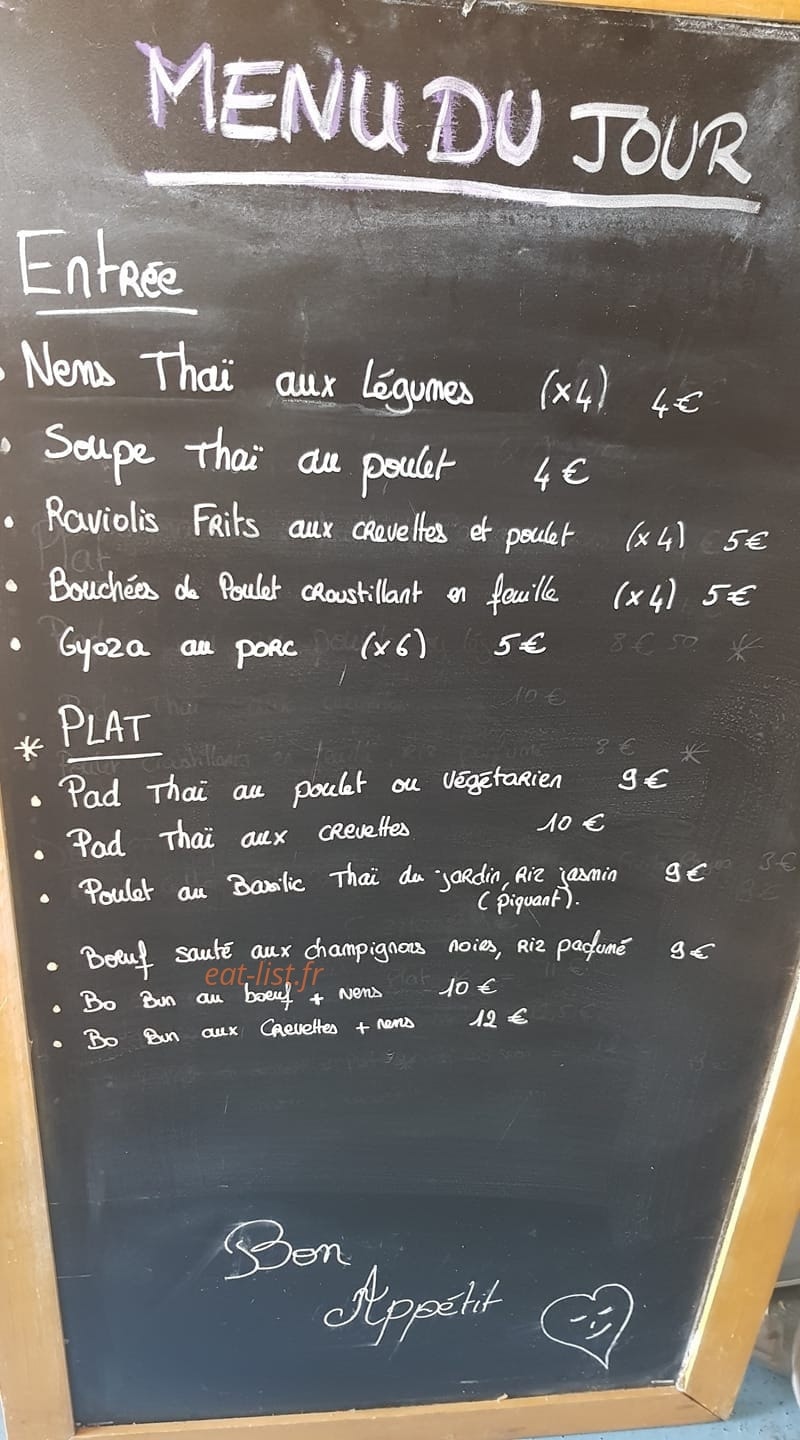 MENU DU JOUR
Entrée
• Nems Thaï aux légumes (x4) 4€
• Soupe Thaï au poulet 4€
• Raviolis Frits aux crevettes et poulet (x4) 5€
• Bouchées de Poulet croustillant en feuille (x4) 5€
• Gyoza au porc (x6) 5€
* PLAT
• Pad Thaï au poulet ou végétarien 9€
• Pad Thaï aux crevettes 10€
• Poulet au Basilic Thaï du jardin, Riz jasmin 9€
(piquant).
• Bœuf sauté aux champignons noirs, Riz pafumé 9€
eat-list.fr
• Bo Bun au bœuf + nems 10€
• Bo Bun aux Crevettes + nems 12€
Bon
Appétit